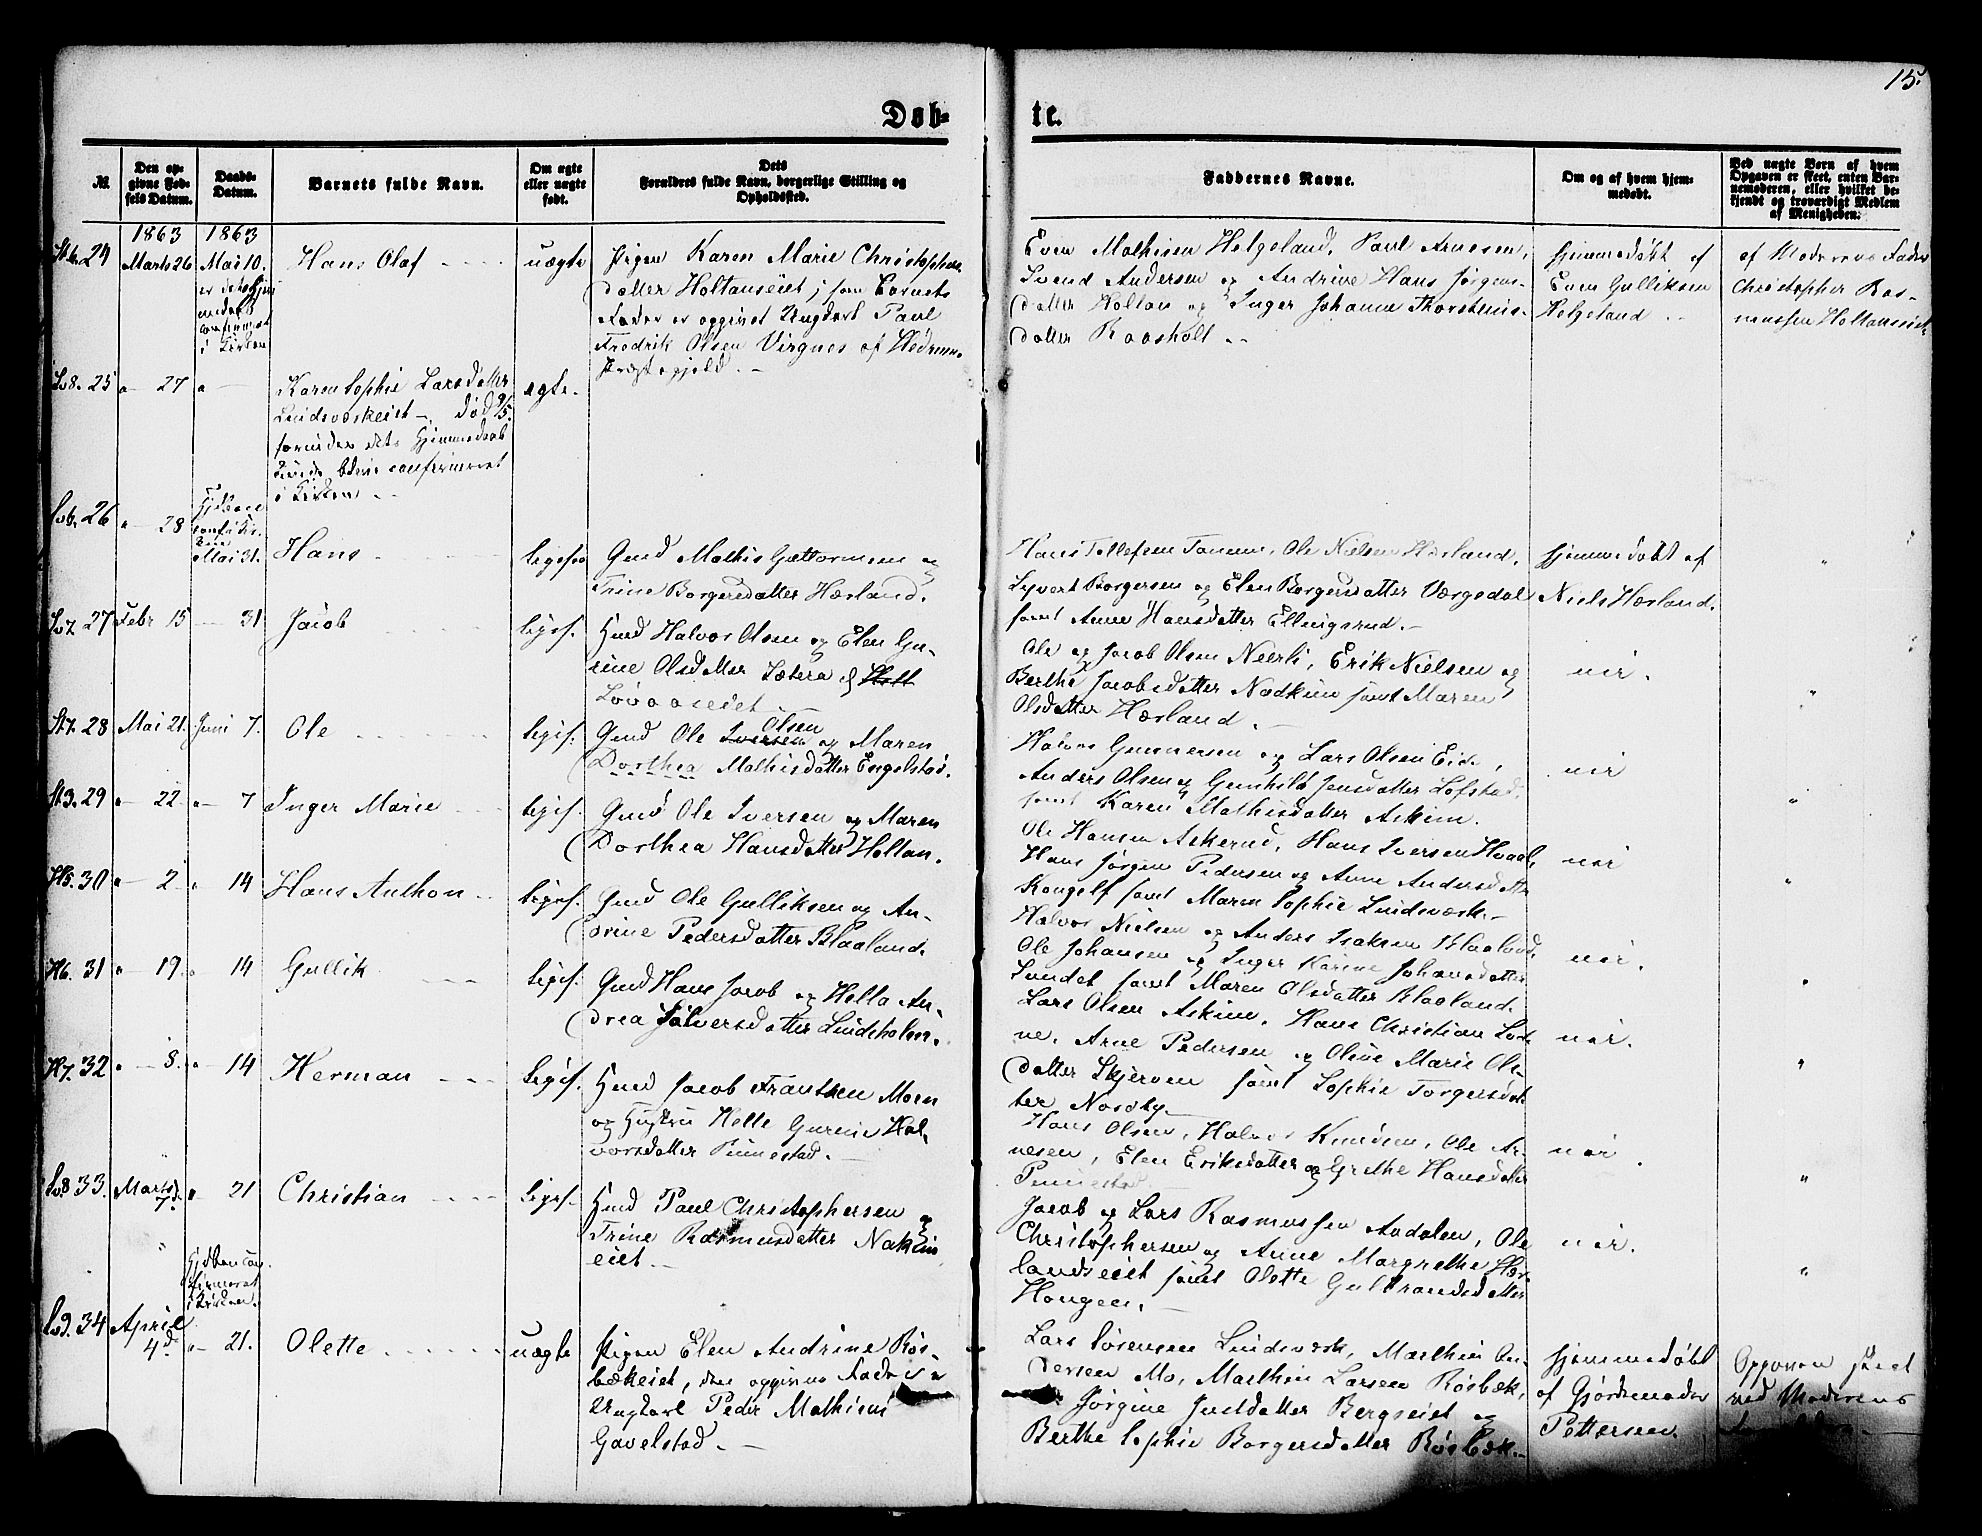 15.
Døb-
te.
№
Den op-
givne Fød-
sels Datum.
Daabs-
Datum.
Barnets fulde Navn.
Om ægte
eller uægte
født.
Dets
Forældres fulde Navn, borgerlige Stilling og
Opholdssted.
Faddernes Navne.
Om og af hvem hjem-
medøbt.
Ved uægte Børn af hvem
Opgaven er skeet, enten Bar-
nemoderen, eller hvilket be-
kjendt og troværdigt Medlem
af Menigheden.
1863
1863
24
Marts 26
Mai 10.
Hans Olaf
uægte
Pigen Karen Marie Christophers-
datter Holtanseiet; som Barnets
Fader er opgivet Ungkarl Paul
Fredrik Olsen Virgnes af Hedrum
Præstegjeld. -
Even Mathisen Helgeland, Paul Arnesen,
Svend Andersen og Andrine Hans Jørgens-
datter Holtan og Inger Johanne Thorstens-
datter Raasholt
hjemmedøbt af
Even Gulliksen
Helgeland
af Moderens Fader
Christopher Ras-
mussen Holtanseiet
25
27
Karen Sophie Larsdatter
Lindsværkeiet - død 9/5.
forinden dets Hjemmedaab
kunde blive confirmeret
i Kirken
ægte.
26
28
Mai 31.
Hans
ligeså
Gmd Mathis Guttormsen og
Trine Borgersdatter Hærland.
Hans Tollefsen Tamum, Ole Nielsen Hærland,
Syvert Borgersen og Elen Borgersdatter Værgedal
samt Anne Hansdatter Ellingsrud. -
hjemmedøbt af
Niels Hærland.
27
Febr 15
31
Jacob
liges.
Hmd Halvor Olsen og Elen Gu-
rine Olsdatter Sætera
Løvaaseiet
Ole og Jacob Olsen Neerli, Erik Nielsen og
Berthe Jacobsdatter Nødkim samt Maren
Olsdatter Hærland. -
nei.
28
Mai 21.
Juni 7.
Ole
ligis.
Olsen
Gmd Ole Iversen og Maren
Dorthea Mathisdatter Engelstad.
Halvor Gunnersen og Lars Olsen Eide,
Anders Olsen og Gunhild Jensdatter Løfstad,
samt Karen Mathisdatter Askim.
nei
29
22
7
Inger Marie
ligis.
Gmd Ole Iversen og Maren
Dorthea Hansdatter Holtan.
Ole Hansen Askerud, Hans Iversen Hvaal,
Hans Jørgen Pedersen og Anne Andersdatter
Kongelf samt Maren Sophie Lindsværk.
nei
30
2
14
Hans Anthon
ligis.
Gmd Ole Gulliksen og An-
drine Pedersdatter Blaaland.
Halvor Nielsen og Anders Isaksen Blaaland,
Ole Johansen og Inger Karine Johansdatter
Lundet samt Maren Olsdatter Blaaland.
nei.
31
19.
14
Gullik
ligis.
Gmd Hans Jacob og Hella An-
drea Sølversdatter Lindsholm.
Lars Olsen Askim, Hans Christian Lod-
ne, Arne Pedersen og Oline Marie Ols-
datter Skjerven samt Sophie Torgersdat-
ter Nordby
nei.
32
8.
14
Herman
ligis.
Hmd Jacob Frantsen Moen
og Hustru Helle Gurine Hal-
vorsdatter Pinnestad. -
Hans Olsen, Halvor Knudsen, Ole Ar-
nesen, Elen Eriksdatter og Grethe Hansdatter
Pinnestad
nei.
33.
Marts
7d.
21
Christian
ligis.
Hmd Paul Christophersen og
Trine Rasmusdatter Nøklin
eiet
Jacob og Lars Rasmussen Aadalen, Ole
Christophersen og Anne Margrethe Hær-
landseiet samt Olette Gulbrandsdatter
Hougen.
nei.
34
April
4d.
21.
Olette
uægte
Pigen Elen Andrine Røs-
bækeiet, den opgivne Fader er
Ungkarl Peder Mathisen
Gavelstad. -
Lars Sørensen Lindsværk, Marthin An-
dersen Mo, Marthin Larsen Røsbæk,
Jørgine Juldatter Bergseiet og
Berthe Sophie Borgersdatter Røsbæk.
hjemmedøbt
af Gjordemoder
Pettersen.
Opgaven skeet
ved Moderens